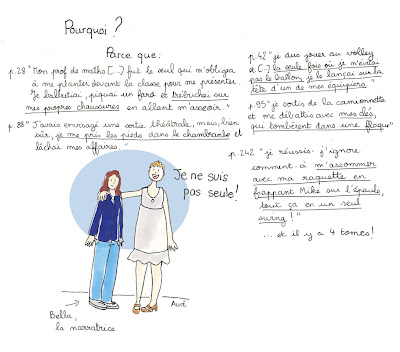 Pourquoi ?
Parce que :
p.28 "Mon prof de maths [...] fut le seul qui m'obligea
à me planter devant la classe pour me présenter.
Je balbutiai, piquai un fard et trébuchai sur
mes propres chaussures en allant m'asseoir."
p.88 "J'avais envisagé une sortie théâtrale, mais, bien
sûr, je me pris les pieds dans le chambranle et
lâchai mes affaires."
p.42 "je dus jouer au volley
et (...) la seule fois où je n'évitai
pas le ballon, je le lançai sur la
tête d'un de mes équipiers"
p.95 "je sortis de la camionnette
et me débattis avec mes clés,
qui tombèrent dans une flaque"
p.242 "je réussis j'ignore
comment à m'assommer
avec ma raquette en
frappant Mike sur l'épaule,
tout ça en un seul
swing !"
... et il y a 4 tomes !
Je ne suis
pas seule !
Bella,
la narratrice